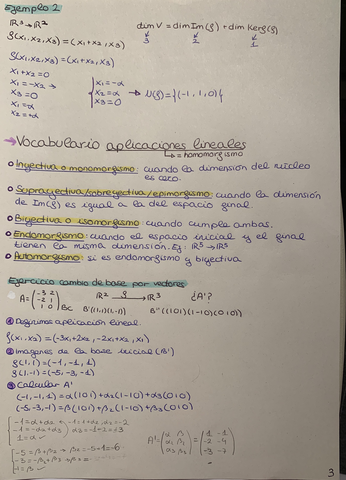 Ejemplo 2
ℝ³→ℝ²
dim V = dim Im(f) + dim Ker(f)
3 2 1
f(x₁,x₂,x₃)=(x₁+x₂,x₃)
f(x₁,x₂,x₃)=(x₁+x₂,x₃)
x₁+x₂=0
x₁=-x₂ →
x₃=0
x₁=α
x₂=+α
x₁=-α
x₂=α
x₃=0
→ N(f)={(-1,1,0)}
→ Vocabulario aplicaciones lineales
↳= homomorfismo
Inyectiva o monomorfismo: cuando la dimensión del núcleo
es cero.
Suprayectiva/sobreyectiva/epimorfismo: cuando la dimensión
de Im(f) es igual a la del espacio final.
Biyectiva o isomorfismo: cuando cumpla ambas.
Endomorfismo: cuando el espacio inicial y el final
tienen la misma dimensión. Ej: ℝ³→ℝ³
Automorfismo: si es endomorfismo y biyectiva
Ejercicio cambio de base por vectores
A= (-3 2
-2 1
1 0) Bc
ℝ² f→ ℝ³ ¿A'?
B'((1,1)(1,-1)) B''((101)(1-10)(010))
1 Digamos aplicación lineal.
f(x₁,x₂)=(-3x₁+2x₂,-2x₁+x₂,x₁)
2 Imágenes de la base inicial (B')
f(1,1)=(-1,-1,1)
f(1,-1)=(-5,-3,1)
3 Calcular A'
(-1,-1,1)=α₁(101)+α₂(1-10)+α₃(010)
(-5,-3,1)=β₁(101)+β₂(1-10)+β₃(010)
-1=α₁+α₂
-1=-α₂+α₃
1=α₁
-5=β₁+β₂ → β₂=-5-1=-6
1=β₁
3